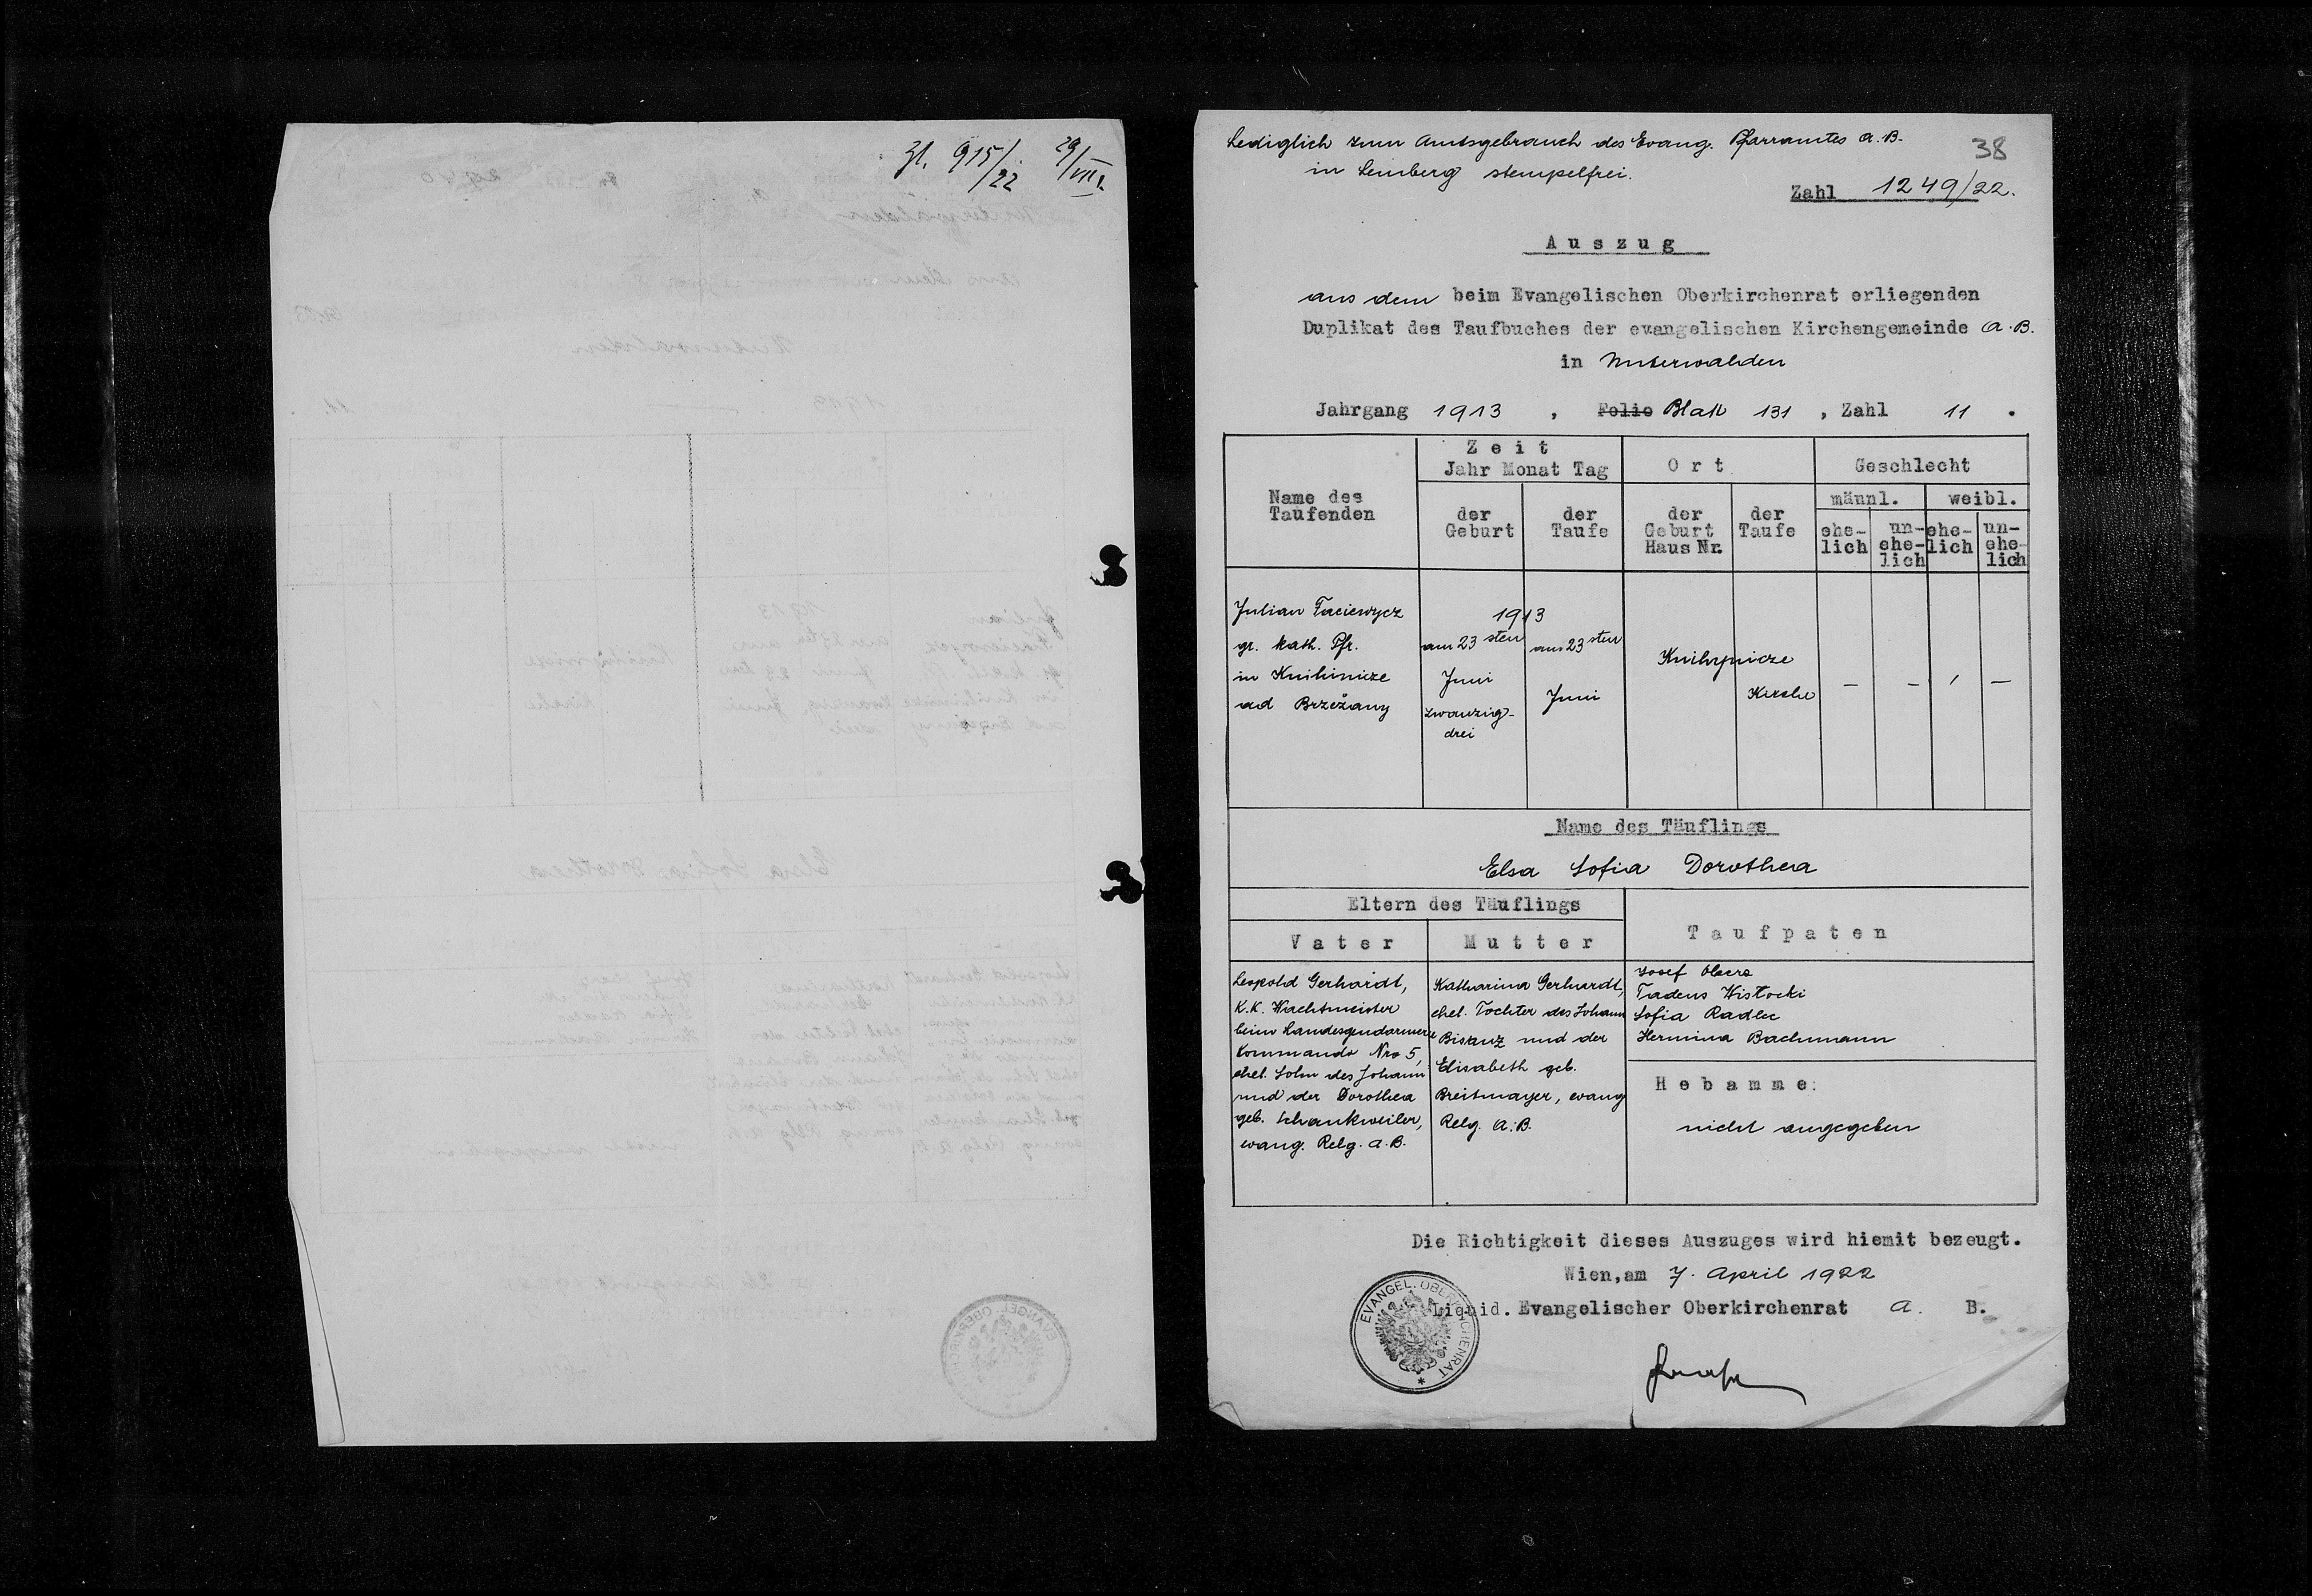 Zl. 915/22 29/VII.
Lediglich zum Amtsgebrauch des Evang. Pfarramtes A.B.
in Lemberg stempelfrei.
38
Zahl 1249/22.
Auszug
aus dem beim Evangelischen Oberkirchenrat erliegenden
Duplikat des Taufbuches der evangelischen Kirchengemeinde A.B.
in Unterwalden
Jahrgang 1913, Folio Blatt 131, Zahl 11.
Zeit
Jahr Monat Tag
Ort
Geschlecht
Name des
Taufenden
männl.
weibl.
der
Geburt
der
Taufe
der
Geburt
Haus Nr.
der
Taufe
ehe-
lich
un-
ehe-
lich
ehe-
lich
un-
ehe-
lich
Julian Taciewycz
gr. kath. Pfr.
in Knihinicze
ad Brzeżany
1913
am 23 sten
Juni
zwanzig-
drei
am 23 sten
Juni
Knihynicze
Kirche
— — / —
Name des Täuflings
Elsa Sofia Dorothea
Eltern des Täuflings
Vater
Mutter
Taufpaten
Leopold Gerhardt,
K.K. Wachtmeister
beim Landesgendarmerie
Kommando Nro 5,
ehel. Sohn des Johann
und der Dorothea
geb. Schankweiler,
evang. Relg. A.B.
Katharina Gerhardt,
ehel. Tochter des Johann
Bisanz und der
Elisabeth geb.
Breitmayer, evang
Relg. A.B.
Josef
Tadeus Wisłocki
Sofia Radlec
Hermina Bachmann
Hebamme:
nicht angegeben
Die Richtigkeit dieses Auszuges wird hiemit bezeugt.
Wien, am 7. April 1922
Liquid. Evangelischer Oberkirchenrat A. B.
EVANGEL. OBERKIRCHENRAT